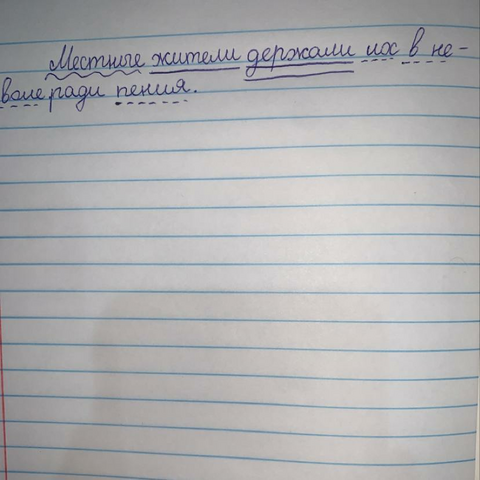 Местные жители держали их в не-
воле ради пения.